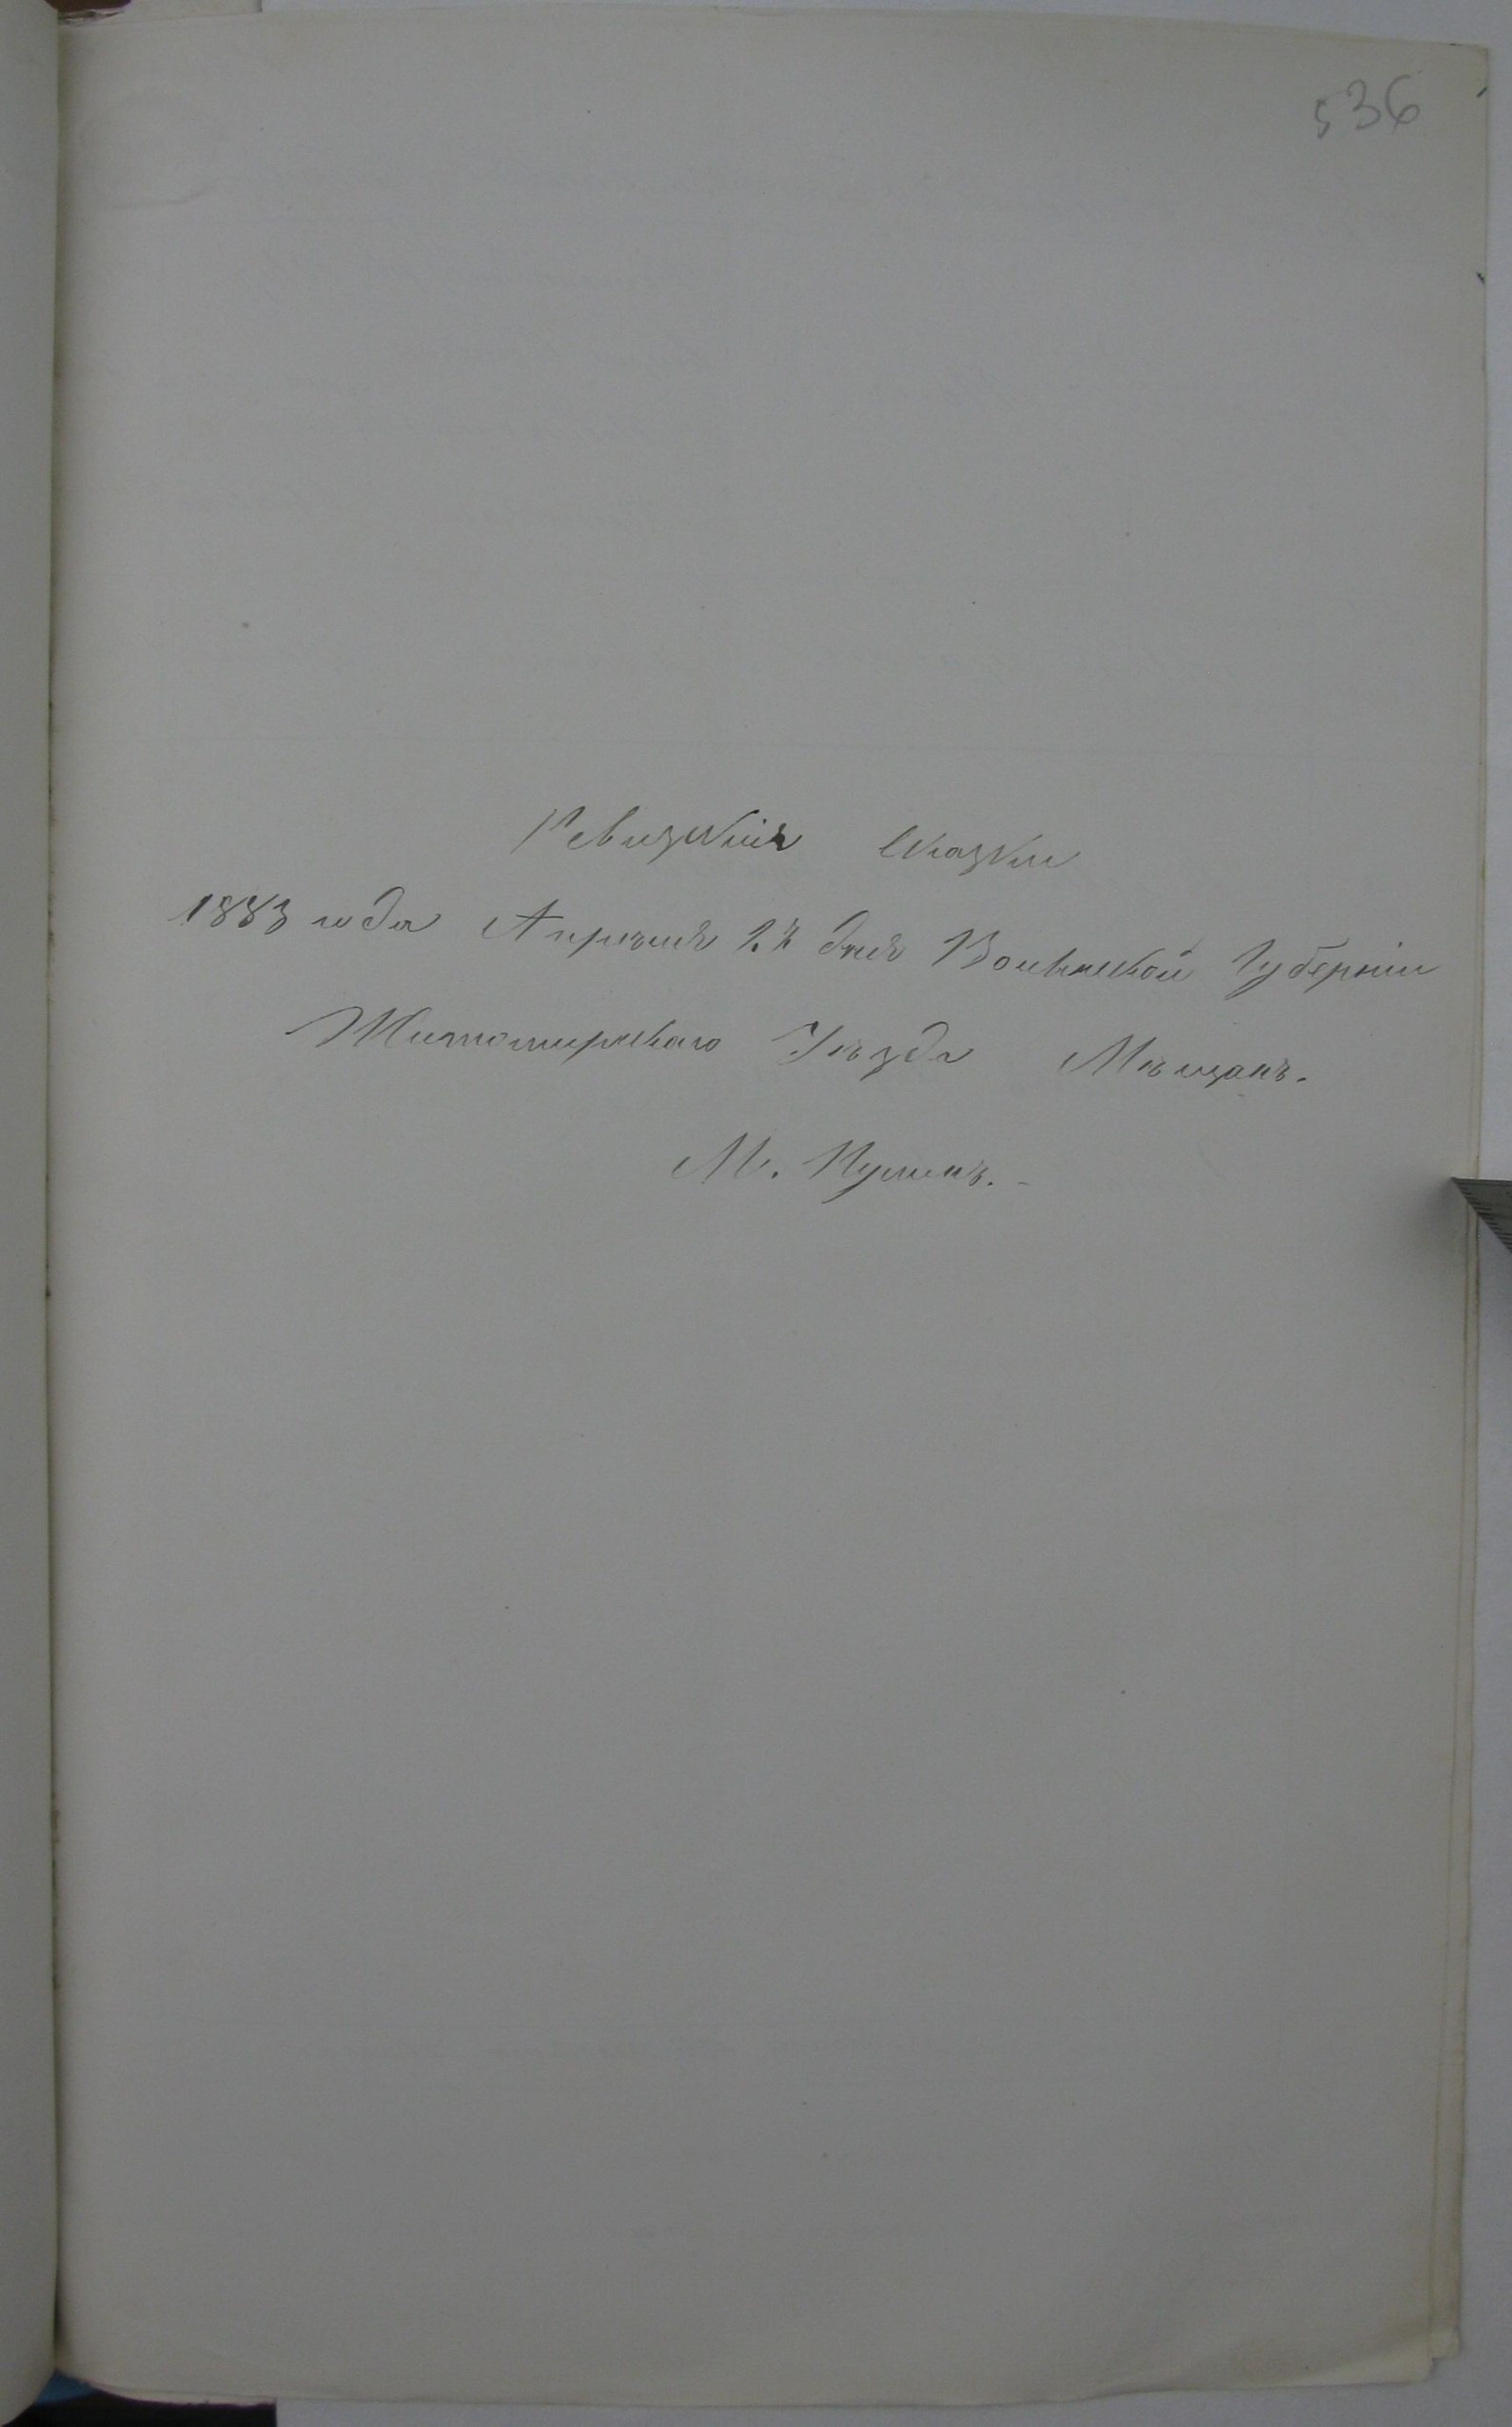 536
Ревизскія Сказки
1883 года Апрѣля 27 дня Волынской Губерніи
Житомирскаго Уѣзда Мѣщанъ.
М. Пулинъ.-